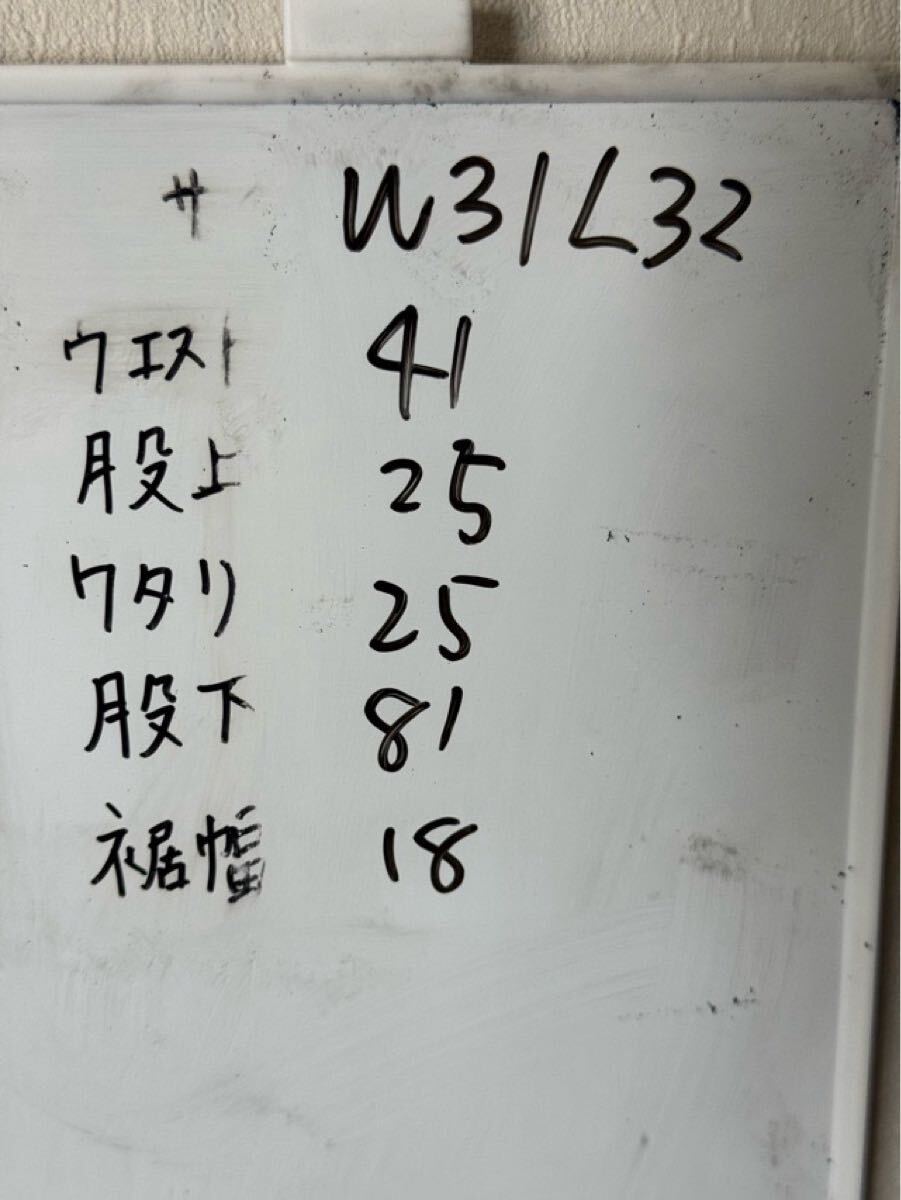 サ W31L32
ウエスト 41
股上 25
ワタリ 25
股下 81
裾幅 18